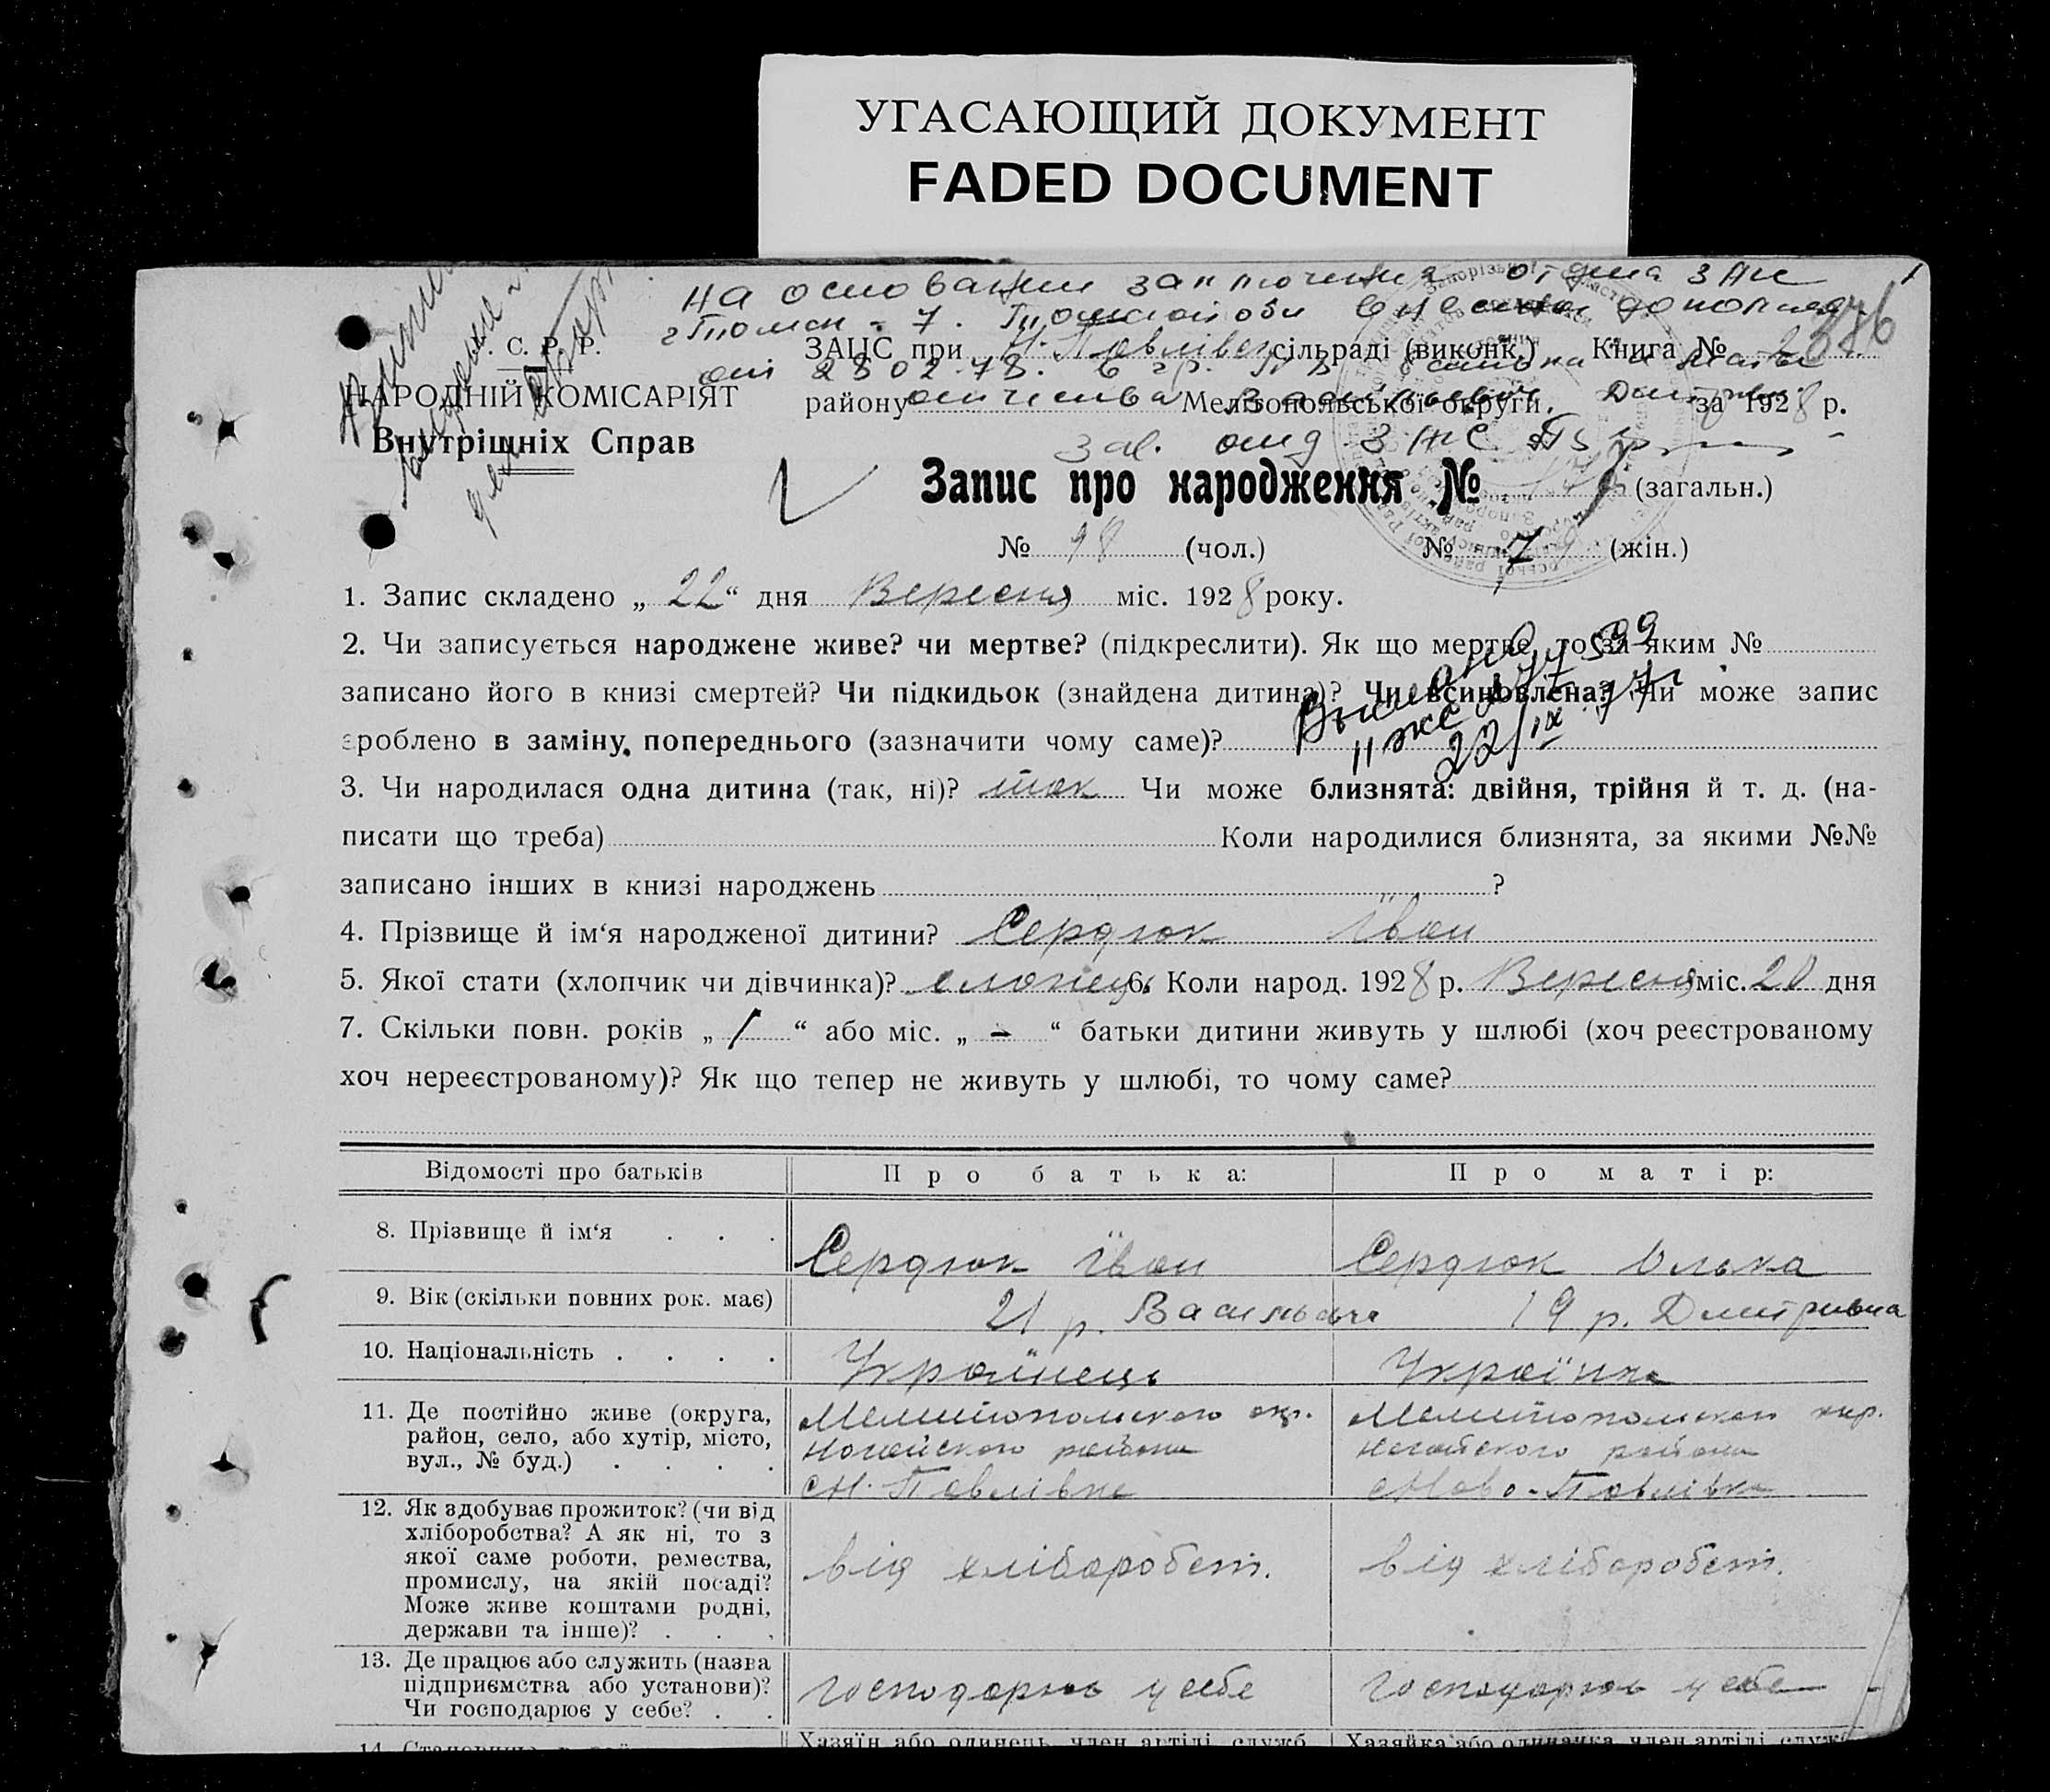 УГАСАЮЩИЙ ДОКУМЕНТ
FADED DOCUMENT
на основании заключения отдела ЗАГС
г Томск - 7. Томской обл внесены дополнен.
С. Р. Р.
ЗАЦС при Н. Павлівск сільраді (виконк.) Книга № 2
376
от 28 02 78. в гр.
НАРОДНІЙ КОМІСАРІЯТ
району Мелітопольської округи, за 1928 р.
отчества Васильевич, Дмитр
Внутрішніх Справ
Зав. отд ЗАГС
Запис про народження № (загальн.)
№ 98 (чол.) № (жін.)
1. Запис складено „ 22 “ дня Вересня міс. 1928 року.
2. Чи записується народжене живе? чи мертве? (підкреслити). Як що мертве, то за яким №
записано його в книзі смертей? Чи підкидьок (знайдена дитина)? Чи всиновлена? Чи може запис
зроблено в заміну попереднього (зазначити чому саме)?
22/IX
3. Чи народилася одна дитина (так, ні)? так Чи може близнята: двійня, трійня й т. д. (на-
писати що треба) Коли народилися близнята, за якими №№
записано інших в книзі народжень ?
4. Прізвище й ім‘я народженої дитини? Сердюк Іван
5. Якої стати (хлопчик чи дівчинка)? хлопець 6. Коли народ. 1928 р. Вересня міс. 20 дня
7. Скільки повн. років „ 1 “ або міс. „ - “ батьки дитини живуть у шлюбі (хоч реєстрованому
хоч нереєстрованому)? Як що тепер не живуть у шлюбі, то чому саме?
Відомості про батьків Про батька: Про матір:
8. Прізвище й ім‘я Сердюк Іван Сердюк Ольха
9. Вік (скільки повних рок. має) 21 р. Васильович 19 р. Дмитривна
10. Національність Українець Українка
11. Де постійно живе (округа, район, село, або хутір, місто, вул., № буд.)
Мелитопольского окр. Мелитопольскои окр.
Ногайского района Ногайского района
Н. Павлівка Ново-Павлівка
12. Як здобуває прожиток? (чи від
хліборобства? А як ні, то з
якої саме роботи, ремества, від хліборобст. від хліборобст.
промислу, на якій посаді?
Може живе коштами родні,
держави та інше)?
13. Де працює або служить (назва
підприємства або установи)? господарює у себе господарює у себе
Чи господарює у себе?
14.
Хазяїн або одинець, член артілі, служб Хазяйка або одиначка, член артілі, служб